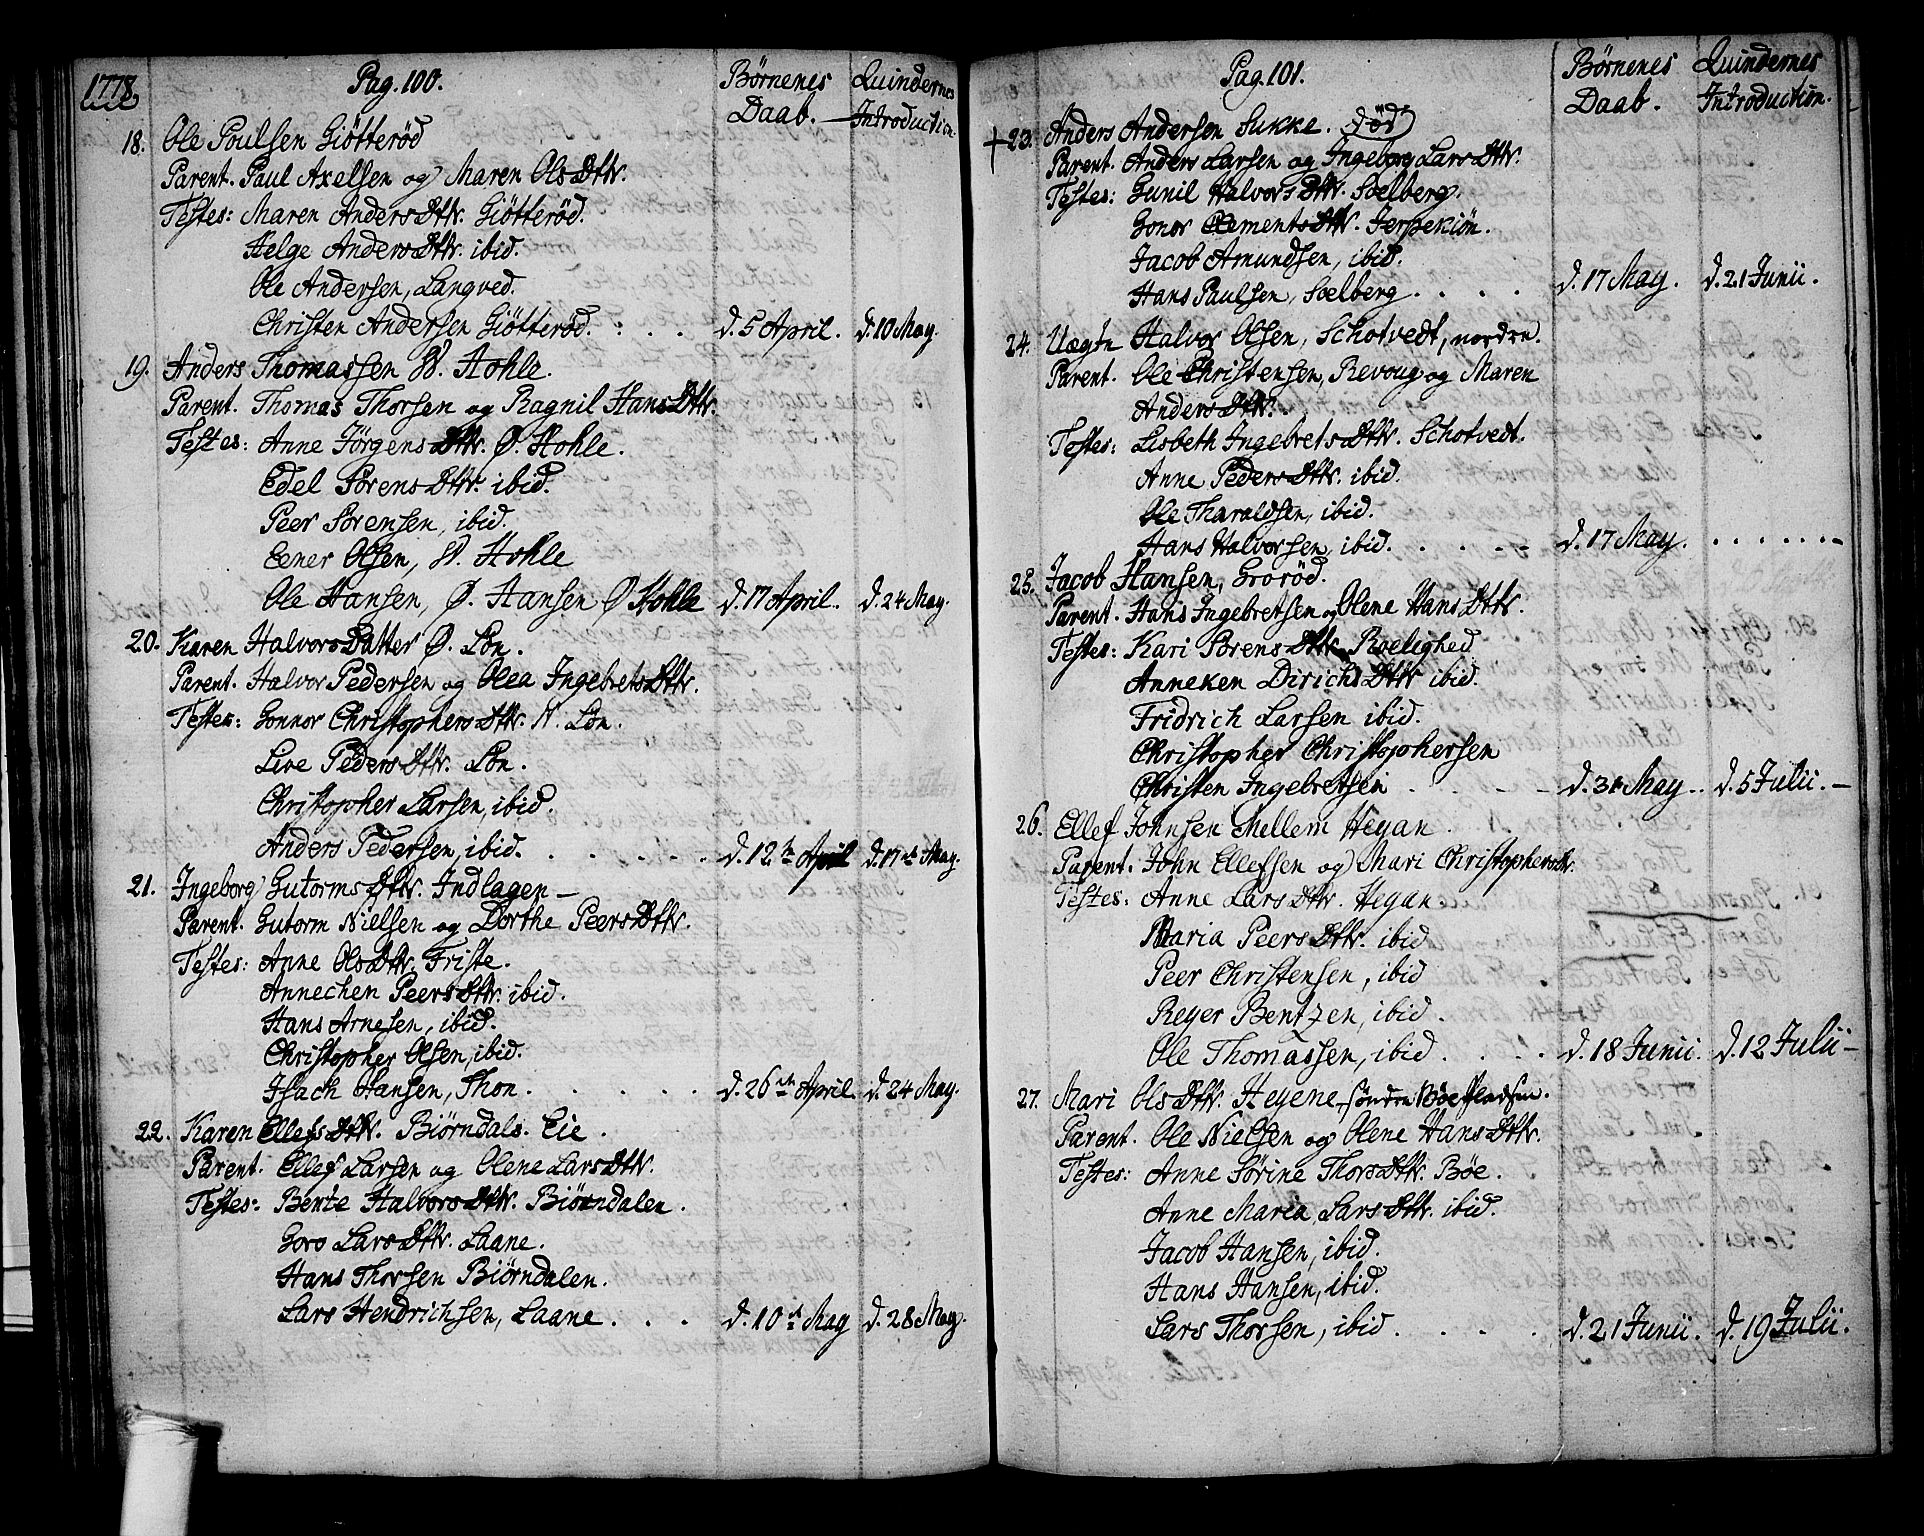 1778.
Pag. 100.
Børnenes Daab.
Quindernes Introduction.
18. Ole Poulsen Giötteröd
Parent. Paul Axelsen og Maren OlsDttr.
Testes: Maren AndersDttr. Giötteröd.
Helge AndersDttr. ibid.
Ole Andersen, Langved.
Christen Andersen Giötteröd. : . . d. 5 April. d. 10 May.
19. Anders Thomassen W. Hohle.
Parent. Thomas Thorsen og Ragnil HansDttr.
Testes: Anne JörgensDttr. Ø. Hohle.
Edel SörensDttr. ibid.
Peer Sörensen, ibid.
Eener Olsen, W. Hohle
Ole Hansen, Ø. Hansen Ø Hohle d. 17 April. d. 24 May.
20. Karen HalvorsDatter Ø. Lön.
Parent. Halvor Pedersen og Olea IngebretsDttr.
Testes: Gonnor ChristophersDttr. N. Lön.
Live PedersDttr. Lön.
Christopher Larsen, ibid.
Anders Pedersen, ibid. . . . . . d. 12te April d. 17de May.
21. Ingeborg GutormsDttr. Indlagen —
Parent. Gutorm Nielsen og Dorthe PeersDttr.
Testes: Anne OlsDttr. Friste.
Annechen PeersDttr. ibid.
Hans Arnesen, ibid.
Christopher Olsen, ibid.
Isach Hansen, Thon . . . . . d. 26de April. d. 24 May.
22. Karen EllefsDttr. Biörndals. Eie.
Parent. Ellef Larsen og Olene LarsDttr.
Testes: Bente HalvorsDttr. Biörndalen.
Goro LarsDttr. Laane.
Hans Thorsen Biörndalen.
Lars Hendrichsen, Laane . . . d. 10de May d. 28 May.
Pag. 101.
Børnenes Daab.
Quindernes Introduction.
+ 23. Anders Andersen Sukke. död
Parent. Anders Larsen og Ingeborg LarsDttr.
Testes: Gunil HalvorsDttr. Soelberg.
Gonor ClementsDttr. Jerpekiön.
Jacob Amundsen, ibid.
Hans Paulsen, Soelberg . . . . d. 17 May. d. 21 Junii.
24. Uægte Halvor Olsen, Schotvedt, nordre.
Parent. Ole Christensen, Revoug og Maren
AndersDttr.
Testes: Lisbeth IngebretsDttr. Schotvedt.
Anne PedersDttr. ibid.
Ole Tharaldsen, ibid.
Hans Halvorsen, ibid. . . . . . d. 17 May. . . . . . . .
25. Jacob Hansen, Groröd.
Parent. Hans Ingebretsen og Olene HansDttr.
Testes: Kari SörensDttr. Roelighed
Anneken DirichsDttr ibid.
Fridrich Larsen ibid.
Christopher Christophersen
Christen Ingebretsen . . . . d. 31 May .. d. 5 Julii. —
26. Ellef Johnsen Mellem Heyan.
Parent. John Ellefsen og Mari Christophersdr.
Testes: Anne LarsDttr. Heyan
Maria PeersDttr. ibid
Peer Christensen, ibid
Reyer Bentzen, ibid.
Ole Thomassen, ibid. . . . . d. 18 Junii. d. 12 Julii —
27. Mari OlsDttr. Heyene, söndre Böe Pladsen.
Parent. Ole Nielsen og Olene HansDttr.
Testes: Anne Sörine ThorsDttr. Böe.
Anne Marea LarsDttr. ibid.
Jacob Hansen, ibid.
Hans Hansen, ibid.
Lars Thorsen, ibid . . . . . d. 21 Junii. d. 19 Julii.